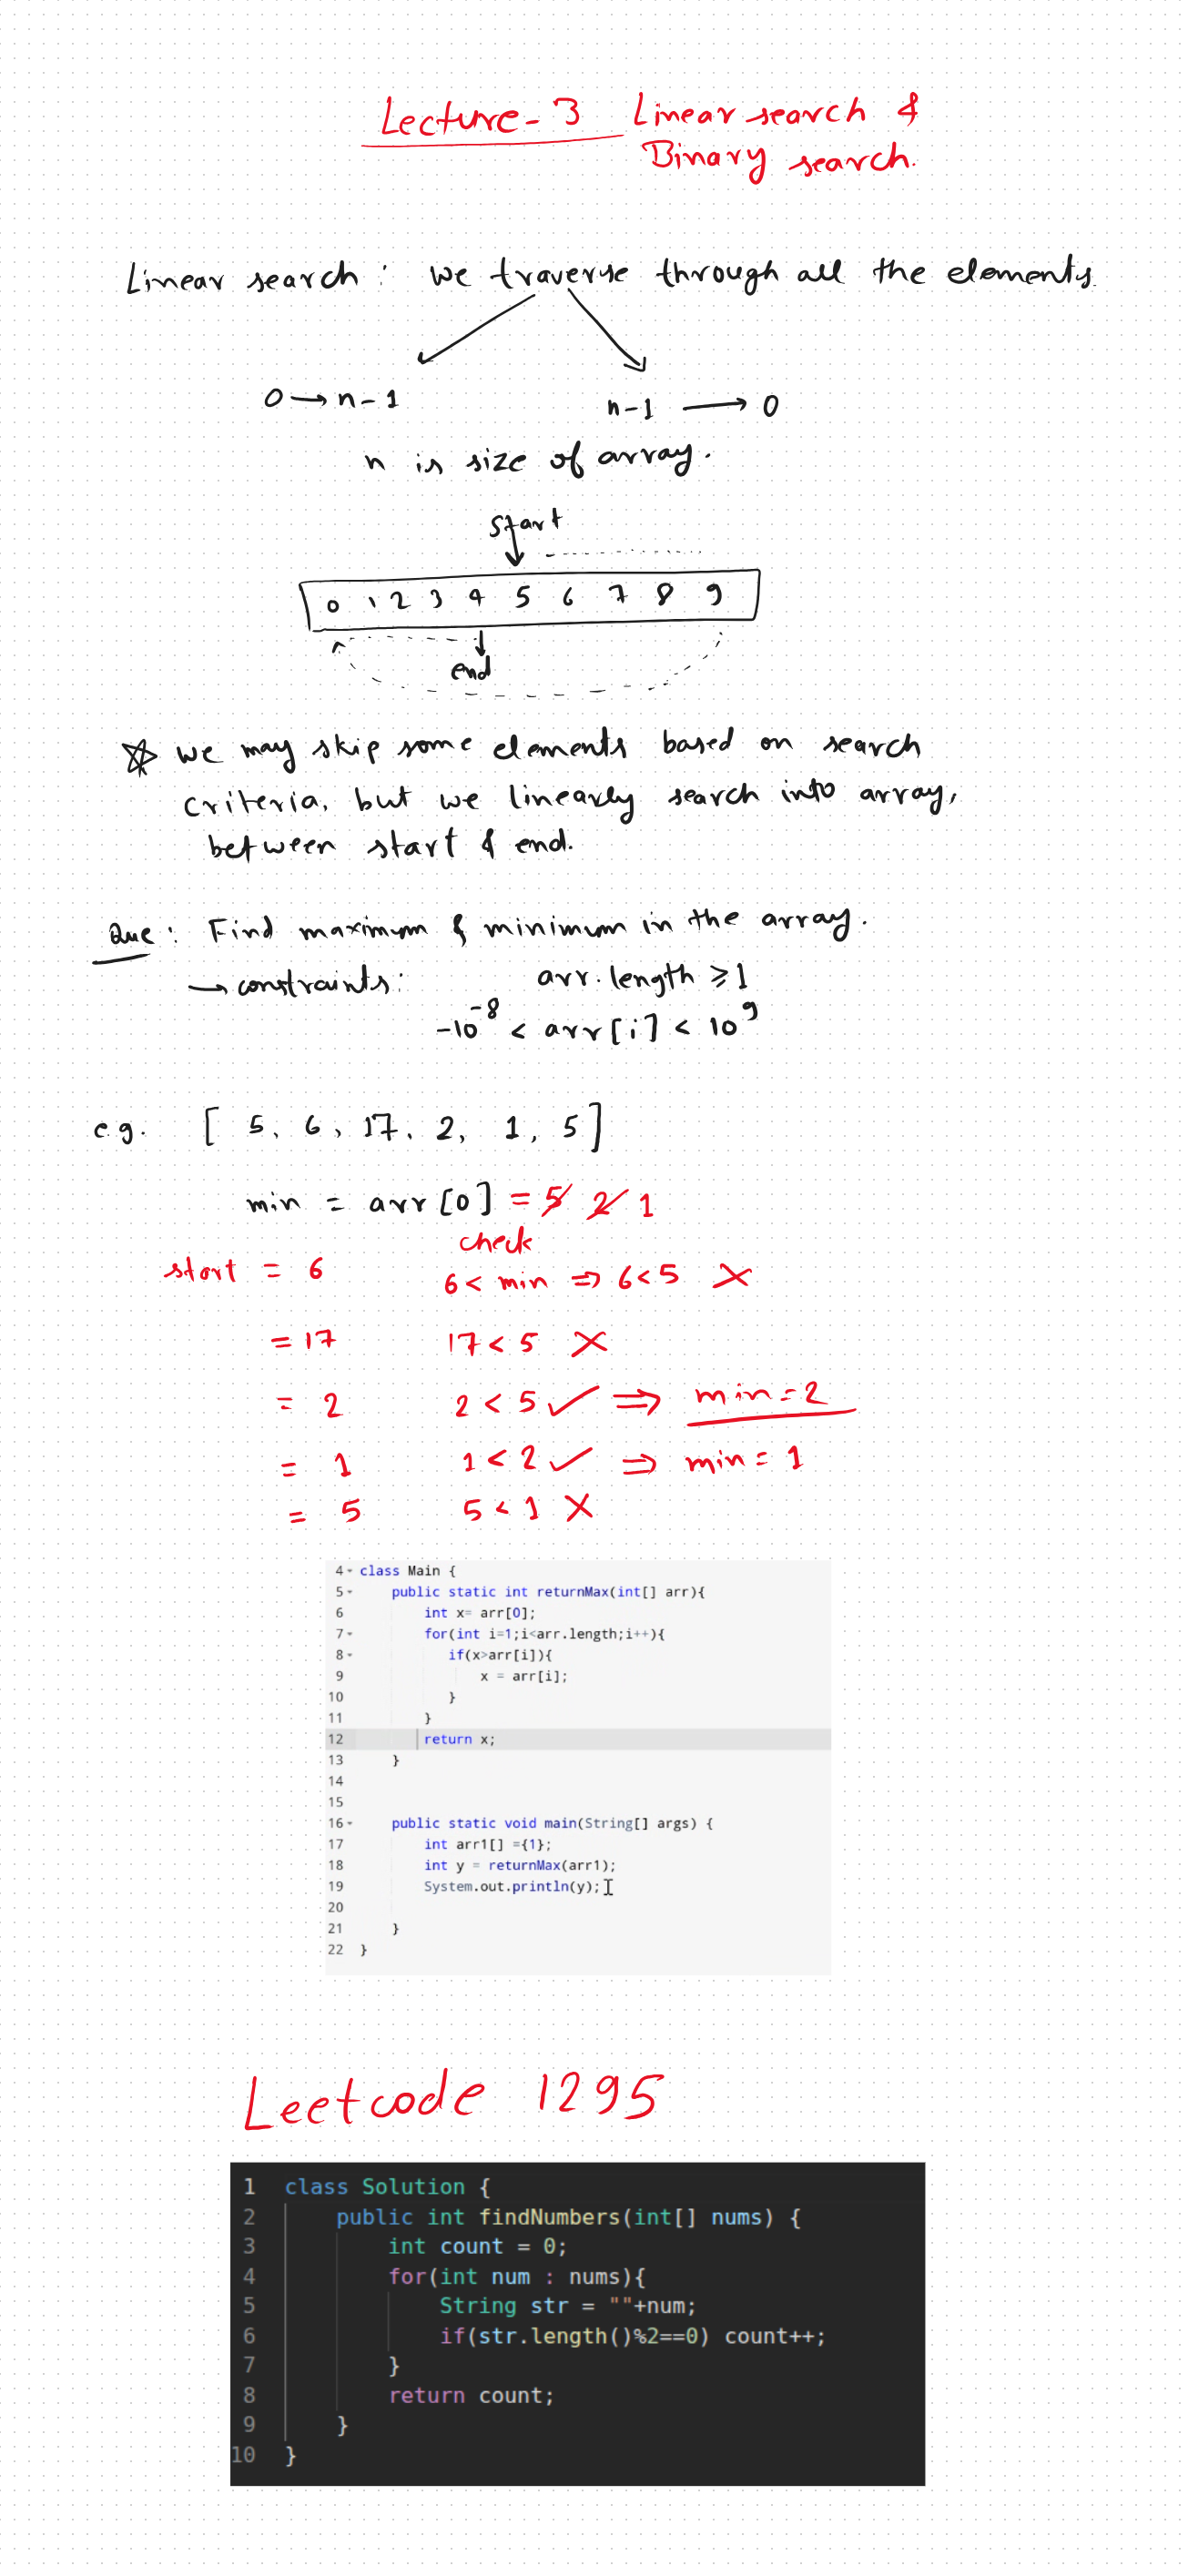 Lecture-3 Linear search &
Binary search.
Linear search : we traverse through all the elements.
0 → n-1
n-1 → 0
n is size of array.
start
0 1 2 3 4 5 6 7 8 9
end
☆ we may skip some elements based on search
criteria, but we linearly search into array,
between start & end.
Que : Find maximum & minimum in the array.
→ constraints: arr.length ≥ 1
-10^-8 < arr[i] < 10^9
e.g. [ 5, 6, 17, 2, 1, 5 ]
min = arr[0] = 5 2 1
check
start = 6 6 < min ⇒ 6 < 5 X
= 17 17 < 5 X
= 2 2 < 5 ✓ ⇒ min = 2
= 1 1 < 2 ✓ ⇒ min = 1
= 5 5 < 1 X
4 class Main {
5 public static int returnMax(int[] arr){
6 int x= arr[0];
7 for(int i=1;i<arr.length;i++){
8 if(x>arr[i]){
9 x = arr[i];
10 }
11 }
12 return x;
13 }
14
15
16 public static void main(String[] args) {
17 int arr1[] ={1};
18 int y = returnMax(arr1);
19 System.out.println(y);
20
21 }
22 }
Leetcode 1295
1 class Solution {
2 public int findNumbers(int[] nums) {
3 int count = 0;
4 for(int num : nums){
5 String str = ""+num;
6 if(str.length()%2==0) count++;
7 }
8 return count;
9 }
10 }